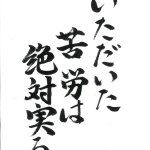 いただいた
苦労は
絶対実る